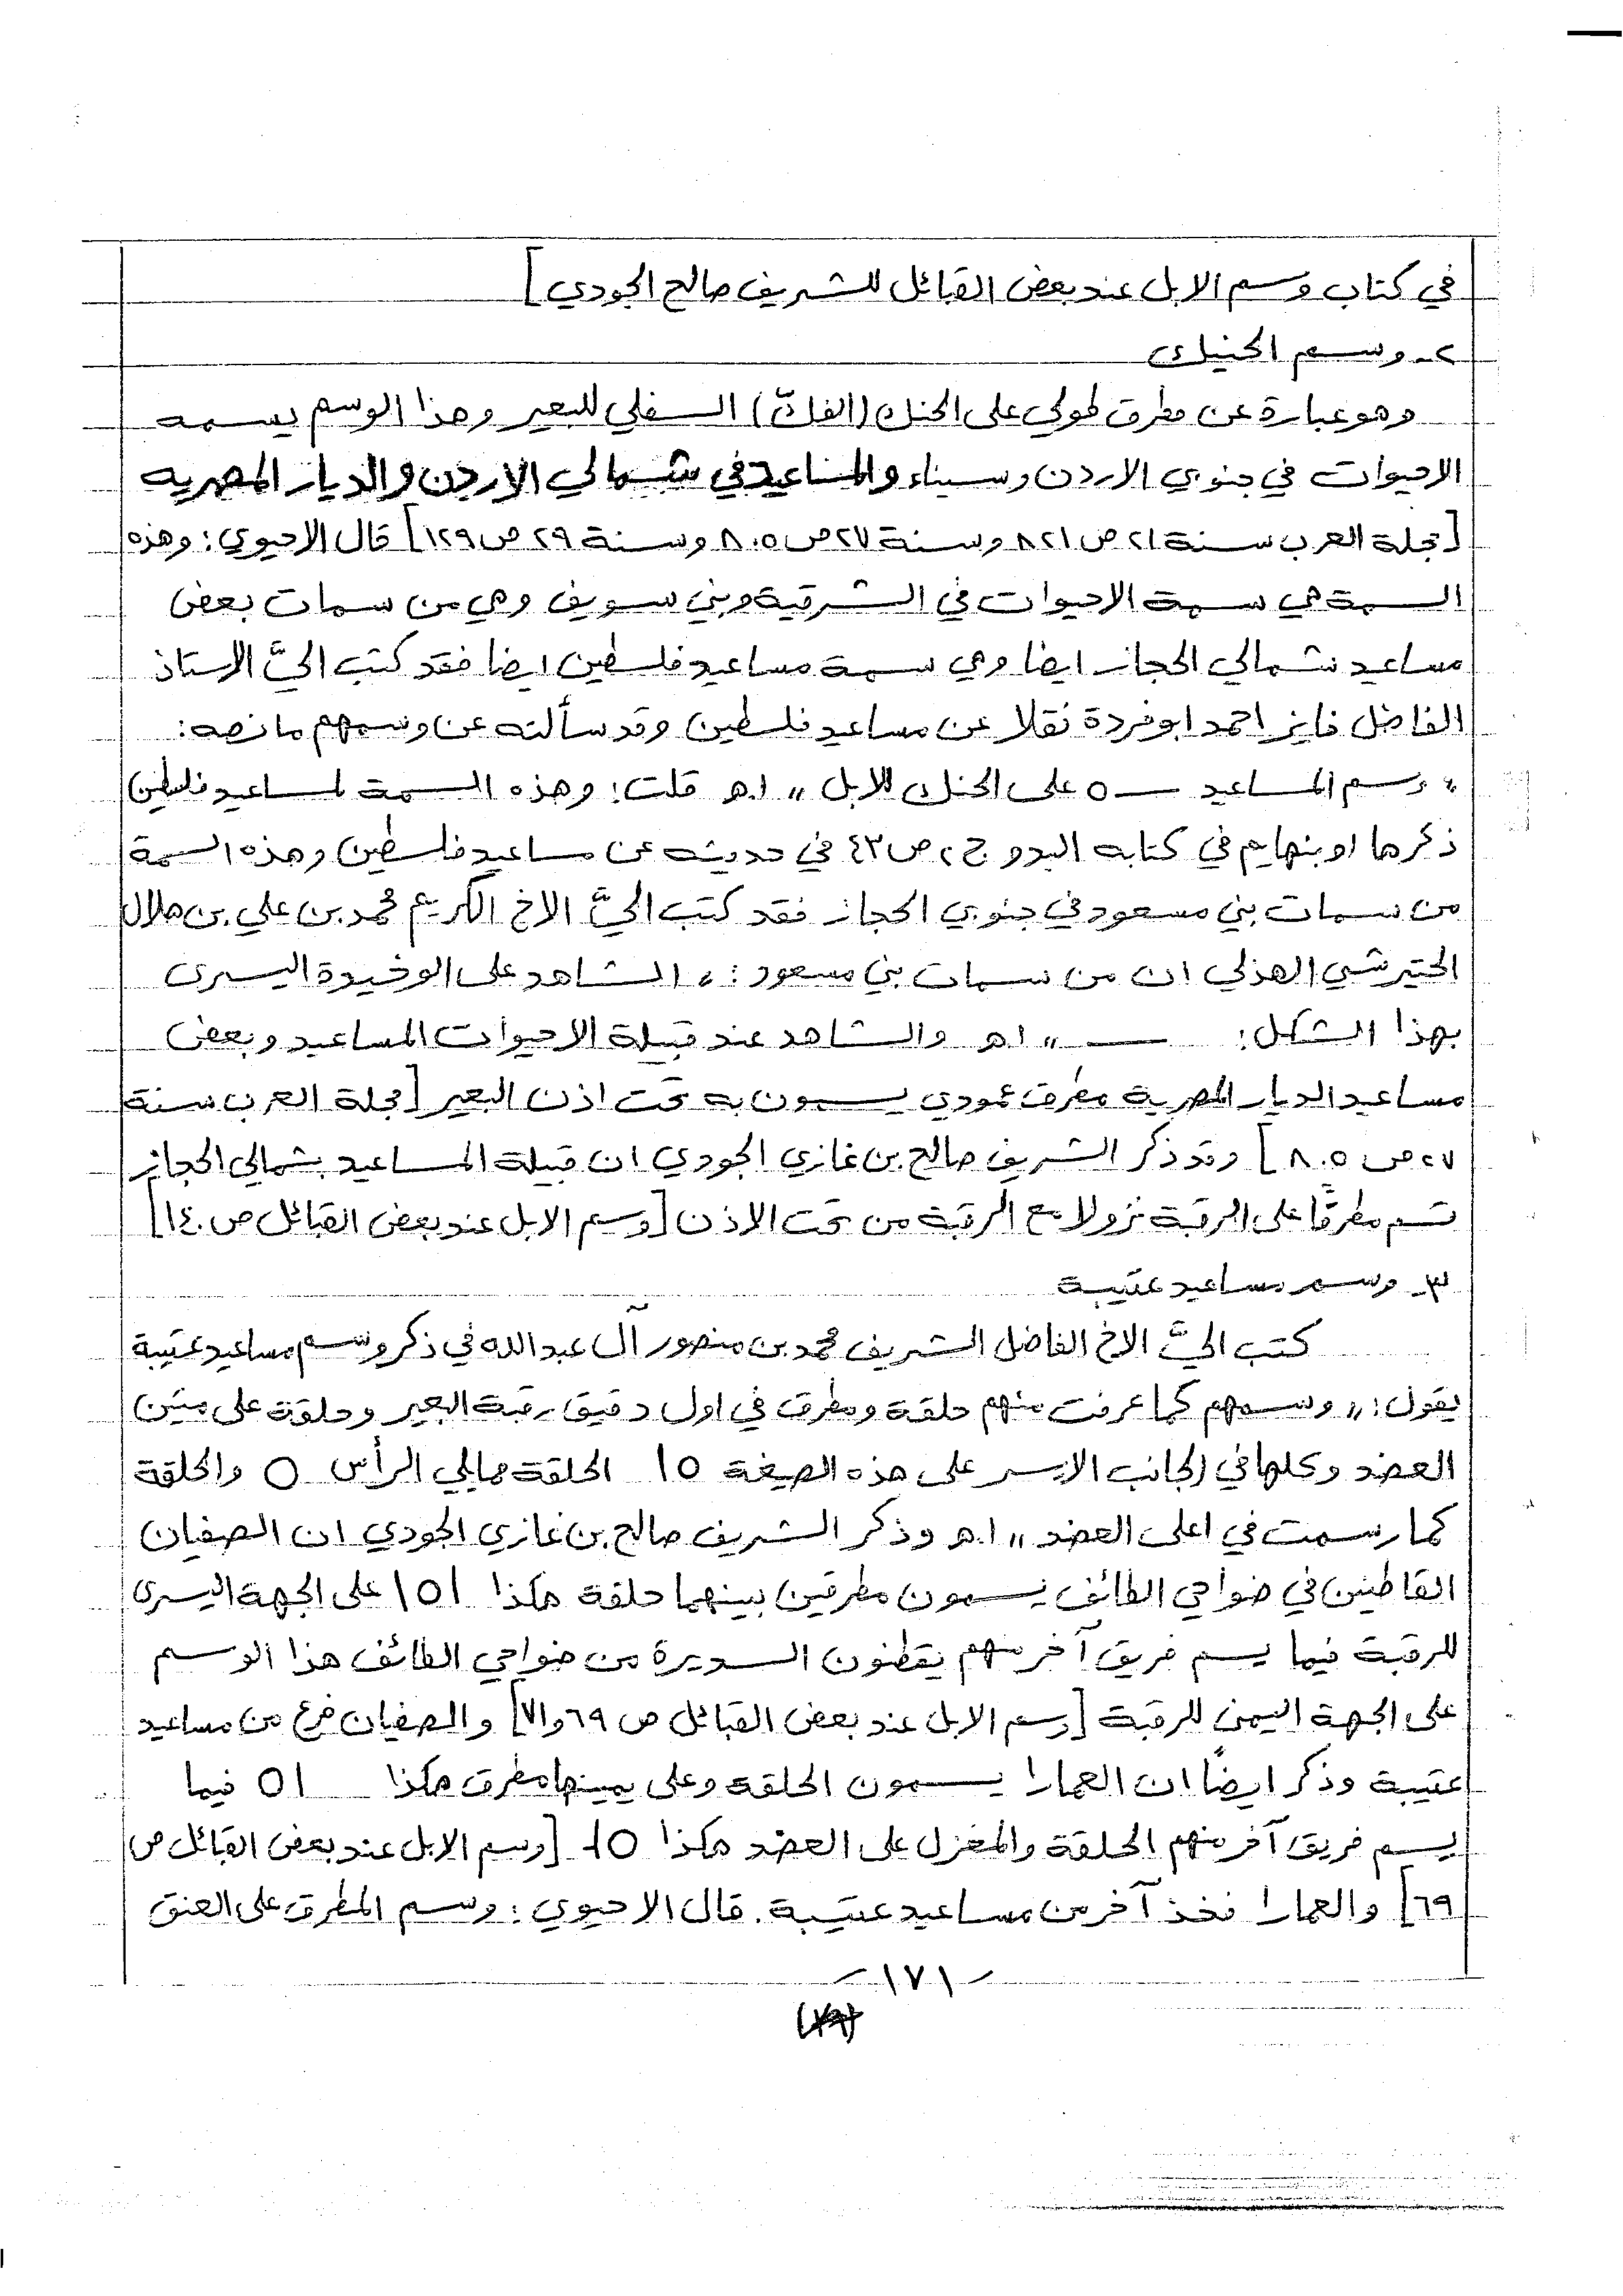 في كتاب وسم الابل عند بعض القبائل للشريف صالح الجودي]
٢ـ وسم الحنيك
وهو عبارة عن مطرق طولي على الحنك (الفكّ) السفلي للبعير وهذا الوسم يسمه
الاحيوات في جنوبي الاردن وسيناء والمساعيد في شمالي الاردن والديار المصريه
[مجلة العرب سنة ٢١ ص ٨٢١ وسنة ٢٧ ص ٨٠٥ وسنة ٢٩ ص ١٢٩] قال الاحيوي: وهذه
السمة هي سمة الاحيوات في الشرقية وبني سويف وهي من سمات بعض
مساعيد شمالي الحجاز ايضا وهي سمة مساعيد فلسطين ايضا فقد كتب اليَّ الاستاذ
الفاضل فايز احمد ابو فردة نقلا عن مساعيد فلسطين وقد سألته عن وسمهم ما نصه:
" وسم المساعيد —o على الحنك للابل " ا.هـ قلت: وهذه السمة لمساعيد فلسطين
ذكرها اوبنهايم في كتابه البدو ج ٢ ص ٤٣ في حديثه عن مساعيد فلسطين وهذه السمة
من سمات بني مسعود في جنوبي الحجاز فقد كتب اليَّ الاخ الكريم محمد بن علي بن هلال
الحتيرشي الهذلي ان من سمات بني مسعود: " الشاهد على الوخيدة اليسرى
بهذا الشكل: — " ا.هـ والشاهد عند قبيلة الاحيوات المساعيد وبعض
مساعيد الديار المصرية مطرق عمودي يسمون به تحت اذن البعير [مجلة العرب سنة
٢٧ ص ٨٠٥] وقد ذكر الشريف صالح بن غازي الجودي ان قبيلة المساعيد بشمالي الحجاز
تسم مطرقًا على الرقبة نزولا مع الرقبة من تحت الاذن [وسم الابل عند بعض القبائل ص ١٤٠]
٣ـ وسم مساعيد عتيبة
كتب اليَّ الاخ الفاضل الشريف محمد بن منصور آل عبدالله في ذكر وسم مساعيد عتيبة
يقول: " وسمهم كما عرفت منهم حلقة ومطرق في اول دقيق رقبة البعير وحلقة على متين
العضد وكلها في الجانب الايسر على هذه الصيغة ١٥ الحلقة مما يلي الرأس O والحلقة
كما رسمت في اعلى العضد " ا.هـ وذكر الشريف صالح بن غازي الجودي ان الصفيان
القاطنين في ضواحي الطائف يسمون مطرقين بينهما حلقة هكذا ١٥١ على الجهة اليسرى
للرقبة فيما يسم فريق آخر منهم يقطنون السديرة من ضواحي الطائف هذا الوسم
على الجهة اليمنى للرقبة [وسم الابل عند بعض القبائل ص ٦٩ و ٧١] والصفيان فرع من مساعيد
عتيبة وذكر ايضًا ان العمارا يسمون الحلقة وعلى يمينها مطرق هكذا ٥١ فيما
يسم فريق آخر منهم الحلقة والمغزل على العضد هكذا ٥⊣ [وسم الابل عند بعض القبائل ص
٦٩] والعمارا فخذ آخر من مساعيد عتيبة. قال الاحيوي: وسم المطرق على العنق
ـ١٧١ـ